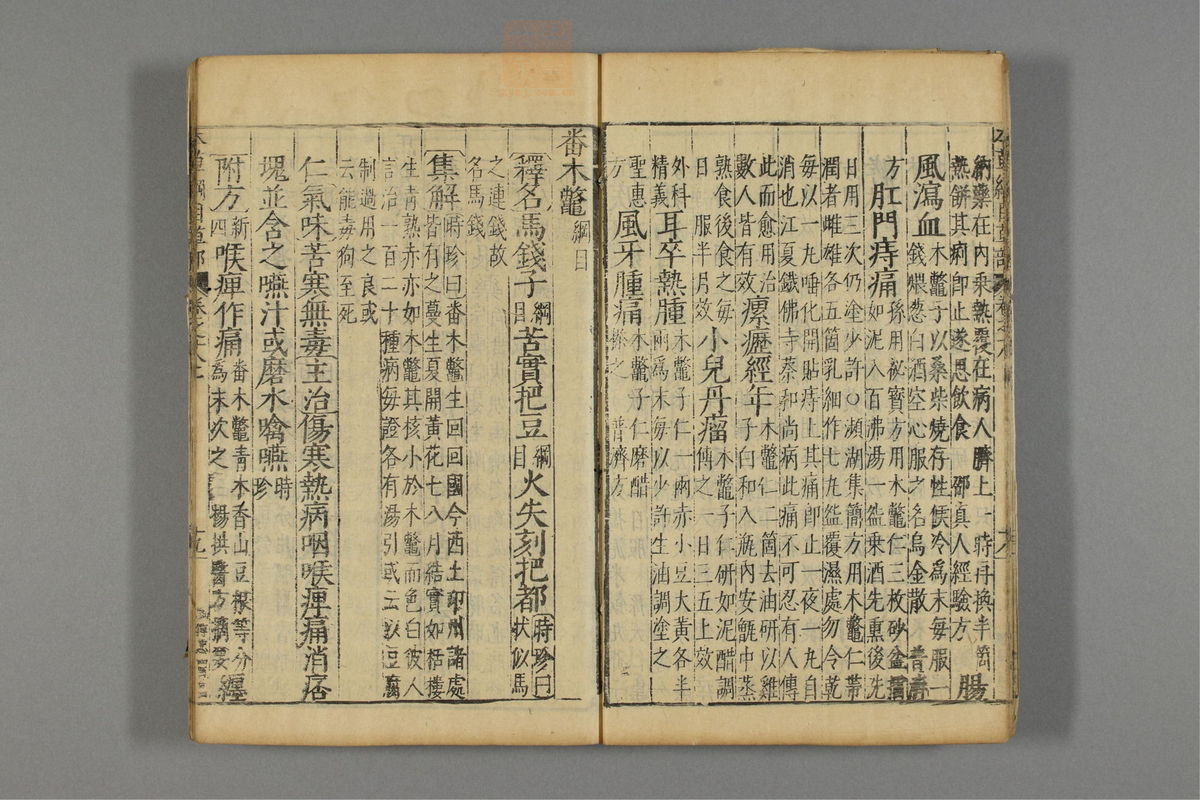 納藥在內乘熱覆在病人臍上一時再換半箇
熱餅其痢即止遂思飲食 邵真人經驗方 腸
風瀉血 木鼈子以桑柴燒存性候冷爲末每服一
錢煨葱白酒空心服之名烏金散 普濟
方 肛門痔痛 孫用祕寶方用木鼈仁三枚砂盆擂
如泥入百沸湯一盌乗酒先熏後洗
日用三次仍塗少許○瀕湖集簡方用木鼈仁帶
潤者雌雄各五箇乳細作七丸盌覆濕處勿令乾
每以一丸唾化開貼痔上其痛即止一夜一丸自
消也江夏鐵佛寺蔡和尚病此痛不可忍有人傳
此而愈用治
數人皆有效 瘰癧經年 木鼈仁二箇去油研以雞
子白和入瓶內安甑中蒸
熟食後食之每
日 服半月效 小兒丹瘤 木鼈子仁研如泥醋調
傅之一日三五上效
外科
精義 耳卒熱腫 木鼈子仁一兩赤小豆大黃各半
兩爲末每以少許生油調塗之
聖惠
方 風牙腫痛 木鼈子仁磨醋
搽之 普濟方
番木鼈 綱目
釋名馬錢子 綱目 苦實把豆 綱目 火失刻把都 時珍曰
狀似馬
之連錢故
名馬錢
集解 時珍曰番木鼈生回回國今西土卭州諸處
皆有之蔓生夏開黃花七八月結實如栝樓
生青熟赤亦如木鼈其核小於木鼈而色白彼人
言治一百二十種病每證各有湯引或云以豆腐
制過用之良或
云能毒狗至死
仁氣味苦寒無毒主治傷寒熱病咽喉痺痛消痞
塊並含之嚥汁或磨水噙嚥 時珍
附方 新四 喉痺作痛 番木鼈青木香山豆根等分
爲末吹之 楊拱醫方摘要 纏